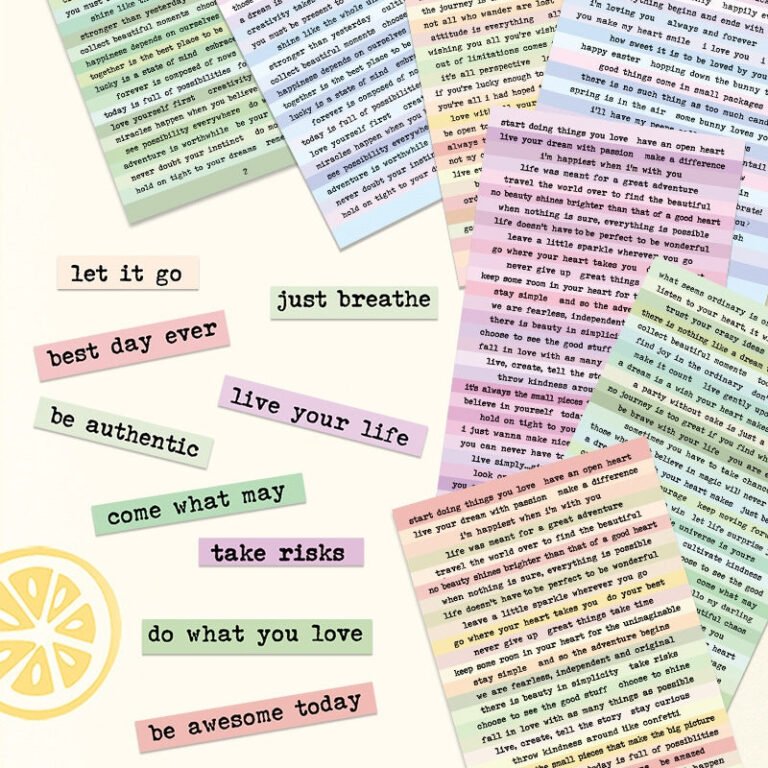 shine like the
stronger than yesterday
collect beautiful moments choose
happiness depends on ourselves
together is the best place to be
lucky is a state of mind embrace
forever is composed of nows
today is full of possibilities
love yourself first creativity
miracles happen when you believe
see possibility everywhere do
adventure is worthwhile be your
never doubt your instinct do mo
hold on tight to your dreams
?
a dream is
creativity takes
you must be present to
shine like the whole univ
stronger than yesterday
collect beautiful moments choose
happiness depends on ourselves
together is the best place to be
lucky is a state of mind embr
forever is composed of
today is full of possibilities
love yourself first creat
miracles happen when you
see possibility everywhe
adventure is worthwhile
never doubt your instinct
hold on tight to your d
the journey is
not all who wander are lost
attitude is everything all
wishing you all you're wishi
out of limitations comes
it's all perspective
if you're lucky enough to
you're all i had hoped
love with all your
be open to
always
not my
live ev
everything begins and ends with
i'm loving you always and forever
you make my heart smile i love you i
how sweet it is to be loved by you
happy easter hopping down the bunny
good things come in small packages
there is no such thing as too much cand
spring is in the air some bunny loves you
i'll have my peeps
start doing things you love have an open heart
live your dream with passion make a difference
i'm happiest when i'm with you
life was meant for a great adventure
travel the world over to find the beautiful
no beauty shines brighter than that of a good heart
when nothing is sure, everything is possible
life doesn't have to be perfect to be wonderful
leave a little sparkle wherever you go
go where your heart takes you
never give up great things
keep some room in your heart for
stay simple and so the adve
we are fearless, independent
there is beauty in simplici
choose to see the good stuff
fall in love with as many
live, create, tell the sto
throw kindness arou
it's always the small pieces
believe in yourself today
hold on tight to your
i just wanna make nice
you can never have to
live simply...
look
you
what seems ordinary is
listen to your heart, it
trust your crazy ideas
there is nothing like a dream
collect beautiful moments
find joy in the ordinary don't
make it count live gently upo
a dream is a wish your heart makes
a party without cake is just a
no journey is too great if you find wh
be brave with your life you are
sometimes you have to take chance
those who don't believe in magic will never
a dre your heart makes just be
courage keep moving forw
win let life surprise
universe is yours
cultivate kindness
choose to see the good
come what may
hello my darling
beautiful chaos
let it go
just breathe
best day ever
live your life
be authentic
come what may
take risks
do what you love
be awesome today
start doing things you love have an open heart
live your dream with passion make a difference
i'm happiest when i'm with you
life was meant for a great adventure
travel the world over to find the beautiful
no beauty shines brighter than that of a good heart
when nothing is sure, everything is possible
life doesn't have to be perfect to be wonderful
leave a little sparkle wherever you go
go where your heart takes you do your best
never give up great things take time
keep some room in your heart for the unimaginable
stay simple and so the adventure begins
we are fearless, independent and original
there is beauty in simplicity take risks
choose to see the good stuff choose to shine
fall in love with as many things as possible
live, create, tell the story stay curious
throw kindness around like confetti
the small pieces that make the big picture
today is full of possibilities
be amazed
happen